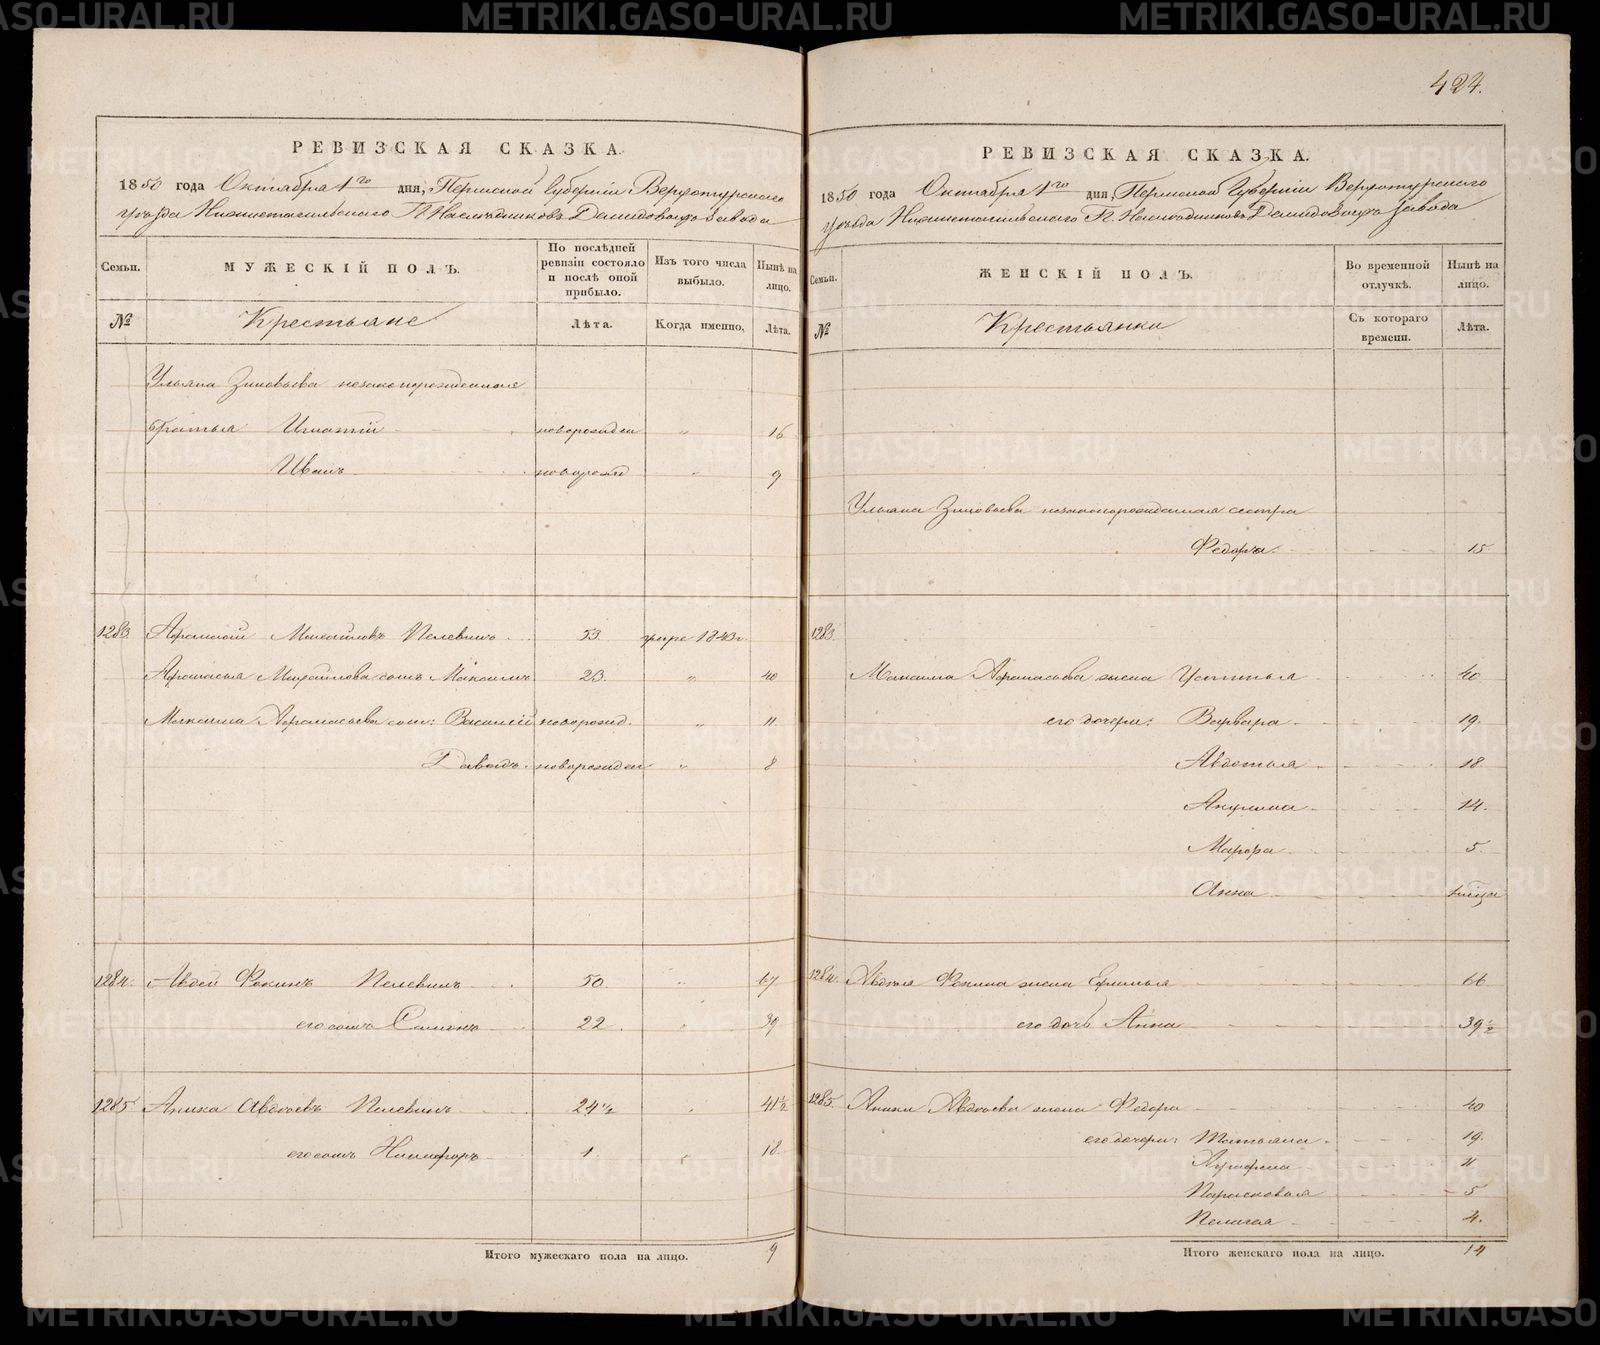 424.
РЕВИЗСКАЯ СКАЗКА.
1850 года Октября 1го дня, Пермской Губернии Верхотурскаго
уѣзда Нижнетагильскаго Г.г. Наслѣдниковъ Демидовыхъ завода
Семьи.
МУЖЕСКІЙ ПОЛЪ.
По послѣдней ревизіи состояло и послѣ оной прибыло.
Изъ того числа выбыло.
Нынѣ на лицо.
№
Крестьяне
Лѣта.
Когда именно,
Лѣта.
Ульяна Зиновьева незаконорожденныя
братья Игнатій новорожден " 16
Иванъ новорожд " 9
1283 Афанасій Михайловъ Пелевинъ 53 умре 1843г
Афанасья Михайлова сынъ Максимъ 23. " 40
Максима Афанасьева сын: Василій новорожд. " 11
Давыдъ новорожден " 8
1284. Авдей Фокинъ Пелевинъ 50 " 67
его сынъ Семенъ 22. " 39
1285 Аника Авдѣевъ Пелевинъ 24½ " 41½
его сынъ Никифоръ 1 " 18
Итого мужескаго пола на лицо. 9
РЕВИЗСКАЯ СКАЗКА.
1850 года Октября 1го дня, Пермской Губерніи Верхотурскаго
уѣзда Нижнетагильскаго Г.г. Наслѣдниковъ Демидовыхъ завода
Семьи.
ЖЕНСКІЙ ПОЛЪ.
Во временной отлучкѣ.
Нынѣ на лицо.
№
Крестьянки
Съ котораго времени.
Лѣта.
Ульяна Зиновьева незаконорожденная сестра
Федора 15
1283.
Максима Афанасьева жена Устинья 40
его дочери: Варвара 19.
Авдотья 18
Акулина 14.
Марфа 5.
Анна
1284. Авдея Фокина жена Ефимья 66
его дочь Анна 39½
1285. Аники Авдѣева жена Федора 40
его дочери: Татьяна 19.
Аграфена 11
Парасковья 5
Пелагея 4.
Итого женскаго пола на лицо. 14
METRIKI.GASO-URAL.RU